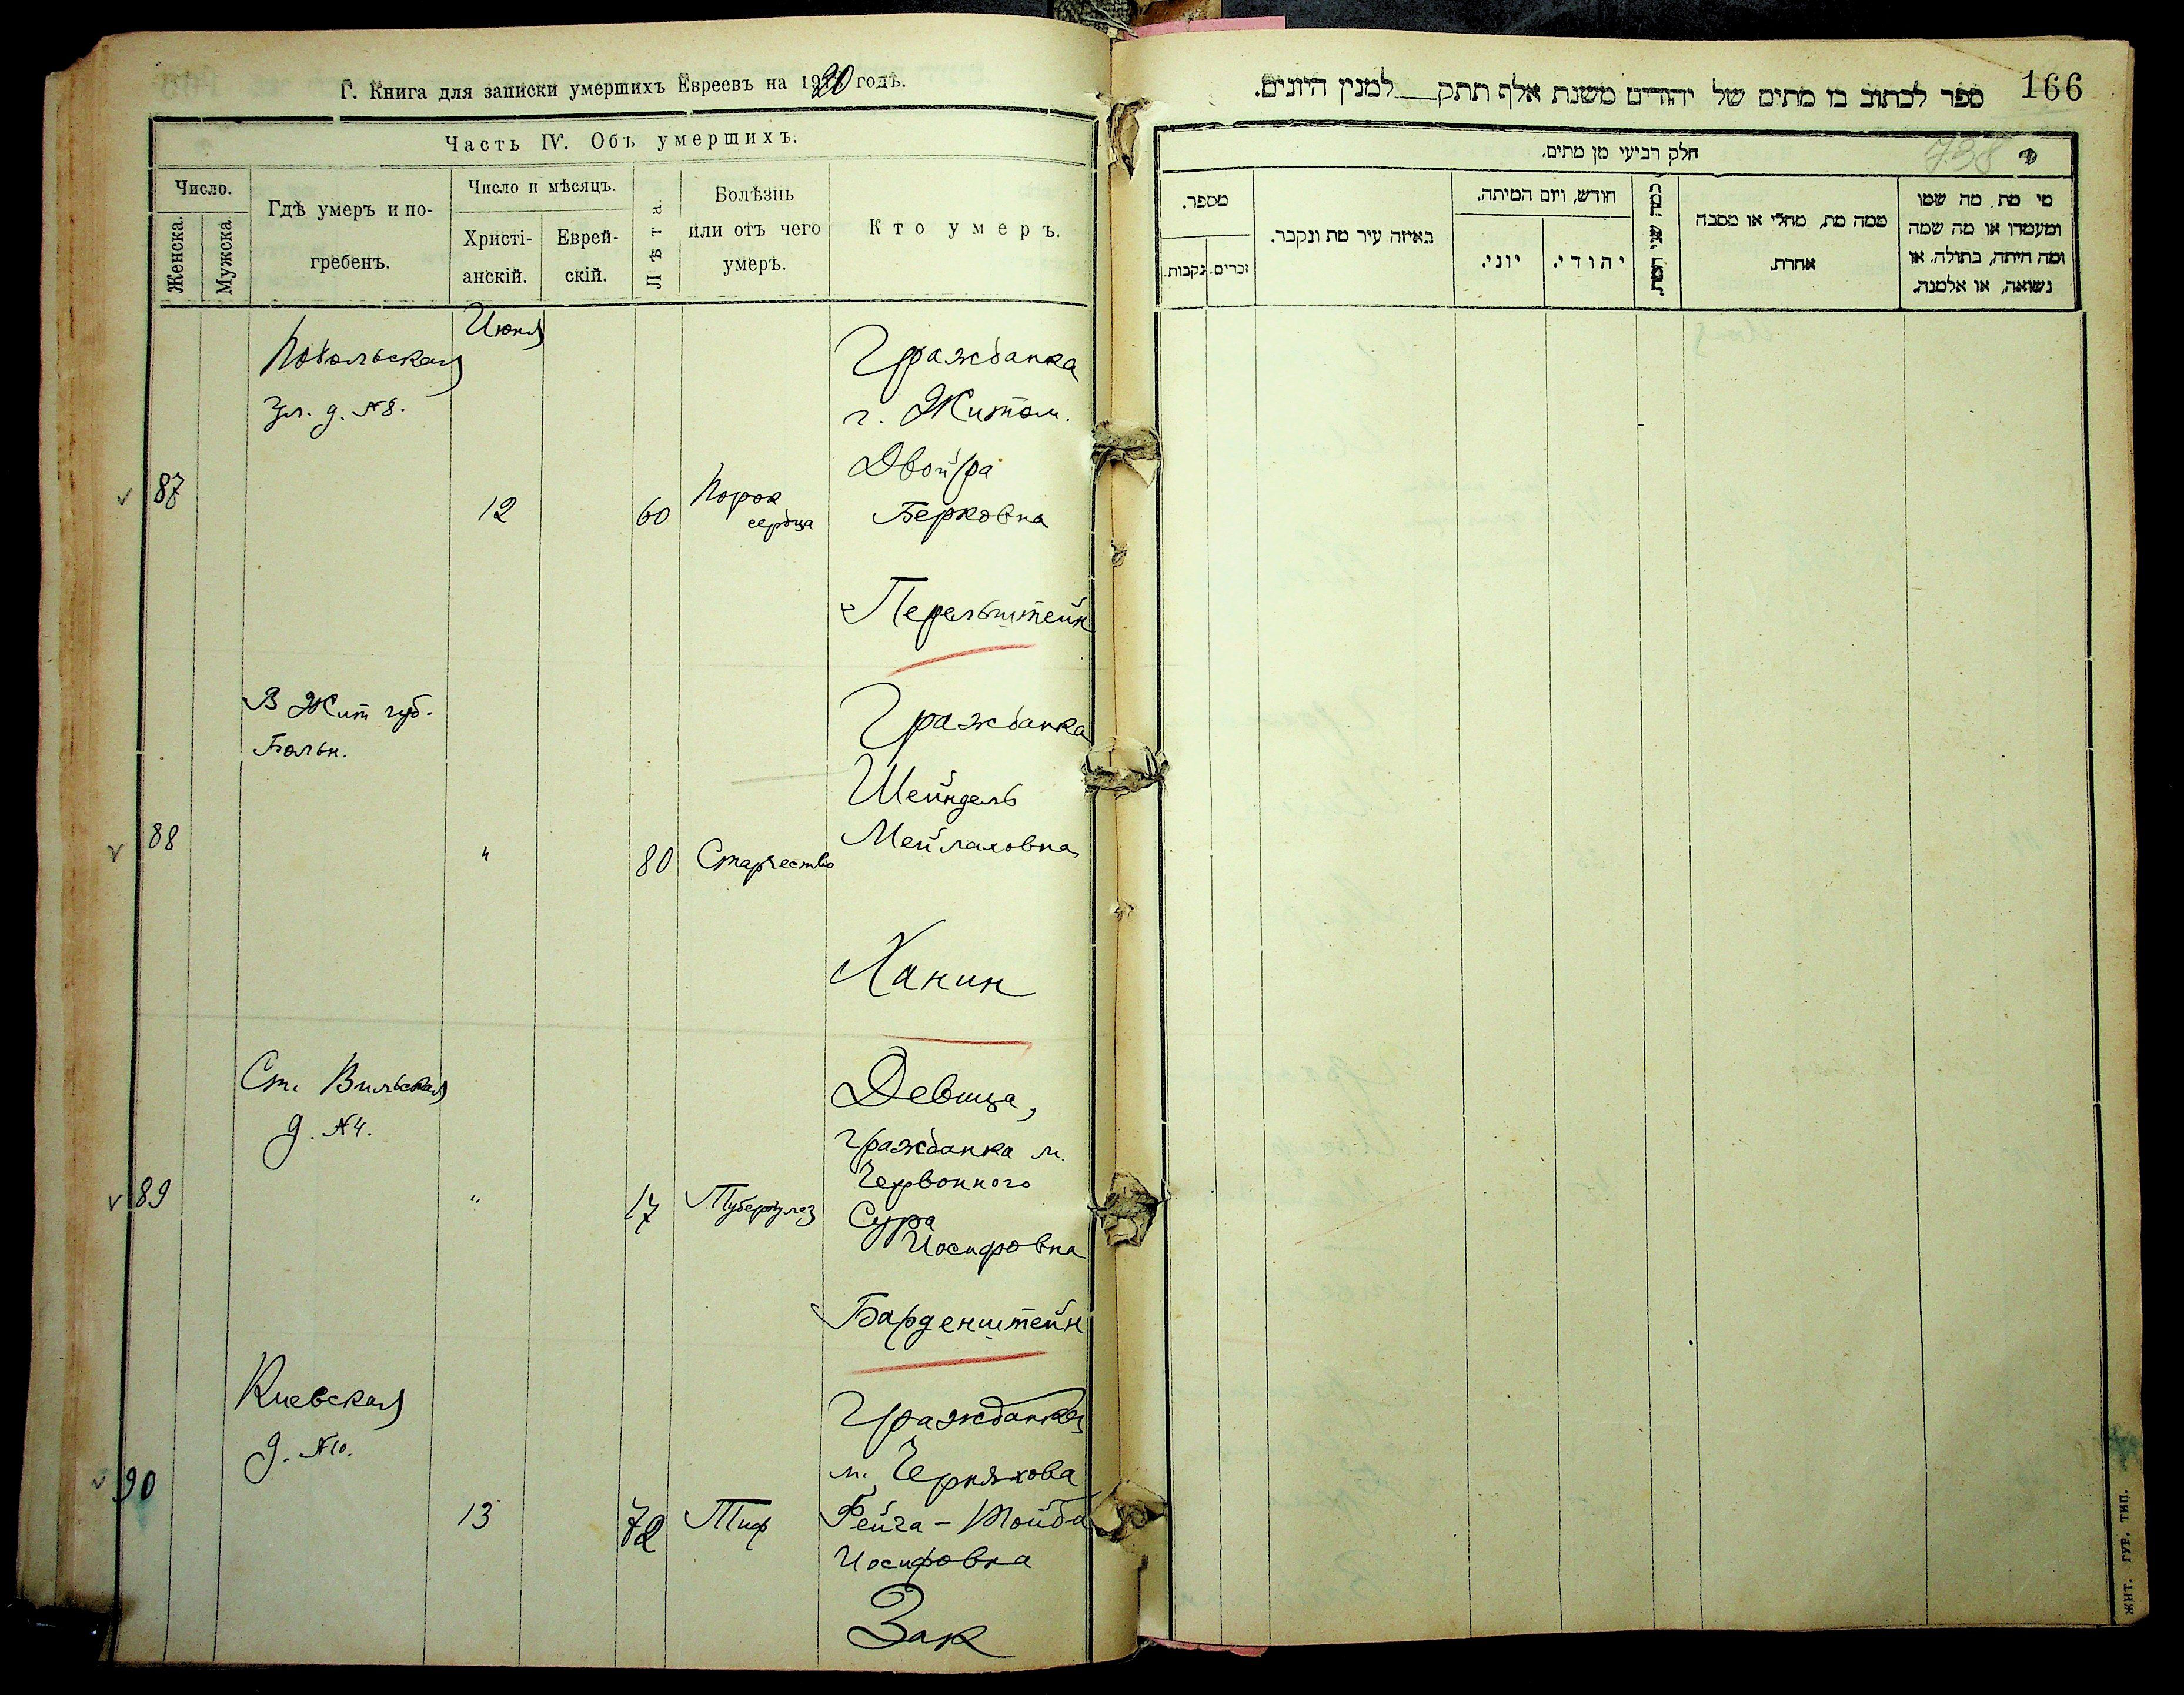 Г. Книга для записки умершихъ Евреевъ на 1920 годъ.
Часть IV. Объ умершихъ.
Число.
Женска.
Мужска
Гдѣ умеръ и по-
гребенъ.
Число и мѣсяцъ.
Христі-
анскій.
Еврей-
скій.
Лѣта.
Болѣзнь
или отъ чего
умеръ.
Кто умеръ.
Июня
Подольская
ул. д. №8.
87
12
60
Порок
сердца
Гражданка
г. Житом.
Двойра
Берковна
Перельштейн
В Жит губ.
Больн.
88
"
80
Старчество
Гражданка
Шейндель
Мейлаховна
Ханин
Ст. Вильская
д. №4.
89
"
17
Туберкулез
Девица,
гражданка м.
Червонного
Сура
Иосифовна
Барденштейн
Киевская
д. №10.
90
13
72
Тиф
Гражданка
м. Черняхова
Фейга-Тойба
Иосифовна
Зак
166
ספר לכתוב בו מתים של יהודים משנת אלף תתק למנין היונים.
738
חלק רביעי מן מתים.
מספר.
נקבות.
זכרים.
באיזה עיר מת ונקבר.
חודש, ויום המיתה.
יוני.
יהודי.
ממה מת, מחלי או מסבה
אחרת.
מי מת, מה שמו
ומעמדו או מה שמה
ומה היתה, בתולה, או
נשואה, או אלמנה.
ЖИТ. ГУБ. ТИП.